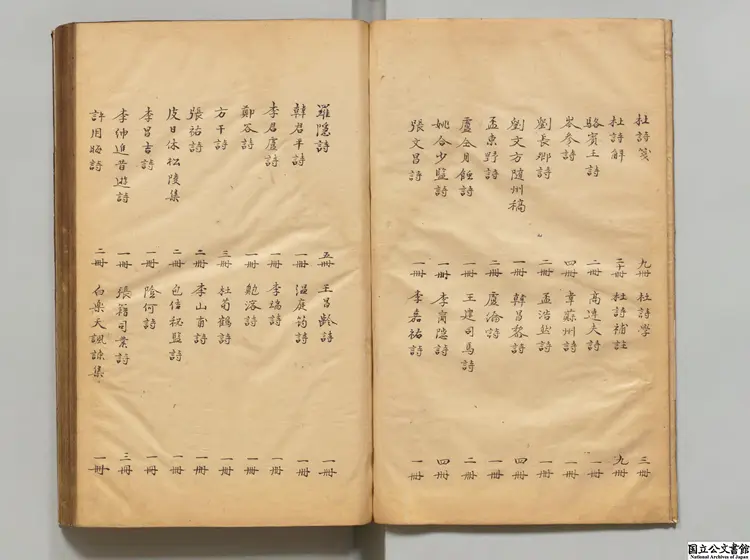 杜詩箋 九冊 杜詩學 三冊
杜詩解 二十冊 杜詩補註 九冊
駱賓王詩 二冊 高達夫詩 一冊
岑參詩 四冊 韋蘇州詩 一冊
劉長卿詩 二冊 孟浩然詩 一冊
劉文方隨州稿 一冊 韓昌黎詩 四冊
孟東野詩 二冊 盧綸詩 一冊
盧仝月蝕詩 一冊 王建司馬詩 二冊
姚合少監詩 一冊 李商隱詩 四冊
張文昌詩 一冊 李嘉祐詩 一冊
羅隱詩 五冊 王昌齡詩 一冊
韓君平詩 一冊 溫庭筠詩 一冊
李君虞詩 一冊 李端詩 一冊
鄭谷詩 一冊 鮑溶詩 一冊
方干詩 三冊 杜荀鶴詩 一冊
張祜詩 二冊 李山甫詩 一冊
皮日休松陵集 二冊 包佶秘監詩 一冊
李昌吉詩 一冊 陰何詩 一冊
李仲進昔遊詩 一冊 張籍司業詩 三冊
許用晦詩 二冊 白樂天諷諫集 一冊
国立公文書館
National Archives of Japan